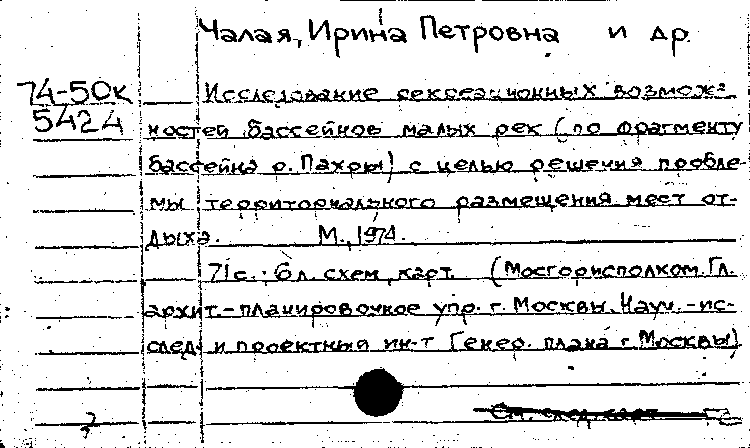 Чалая, Ирина Петровна и др.
74-50к
5424
Исследование рекреационных возмож-
ностей бассейнов малых рек (по фрагменту
бассейна р. Пахры) с целью решения пробле-
мы территориального размещения мест от-
дыха. М., 1974.
71 с.; 6 л. схем, карт. (Мосгорисполком. Гл.
архит.-планировочное упр. г. Москвы. Науч.-ис-
след. и проектный ин-т Генер. плана г. Москвы)
См. след. карт.